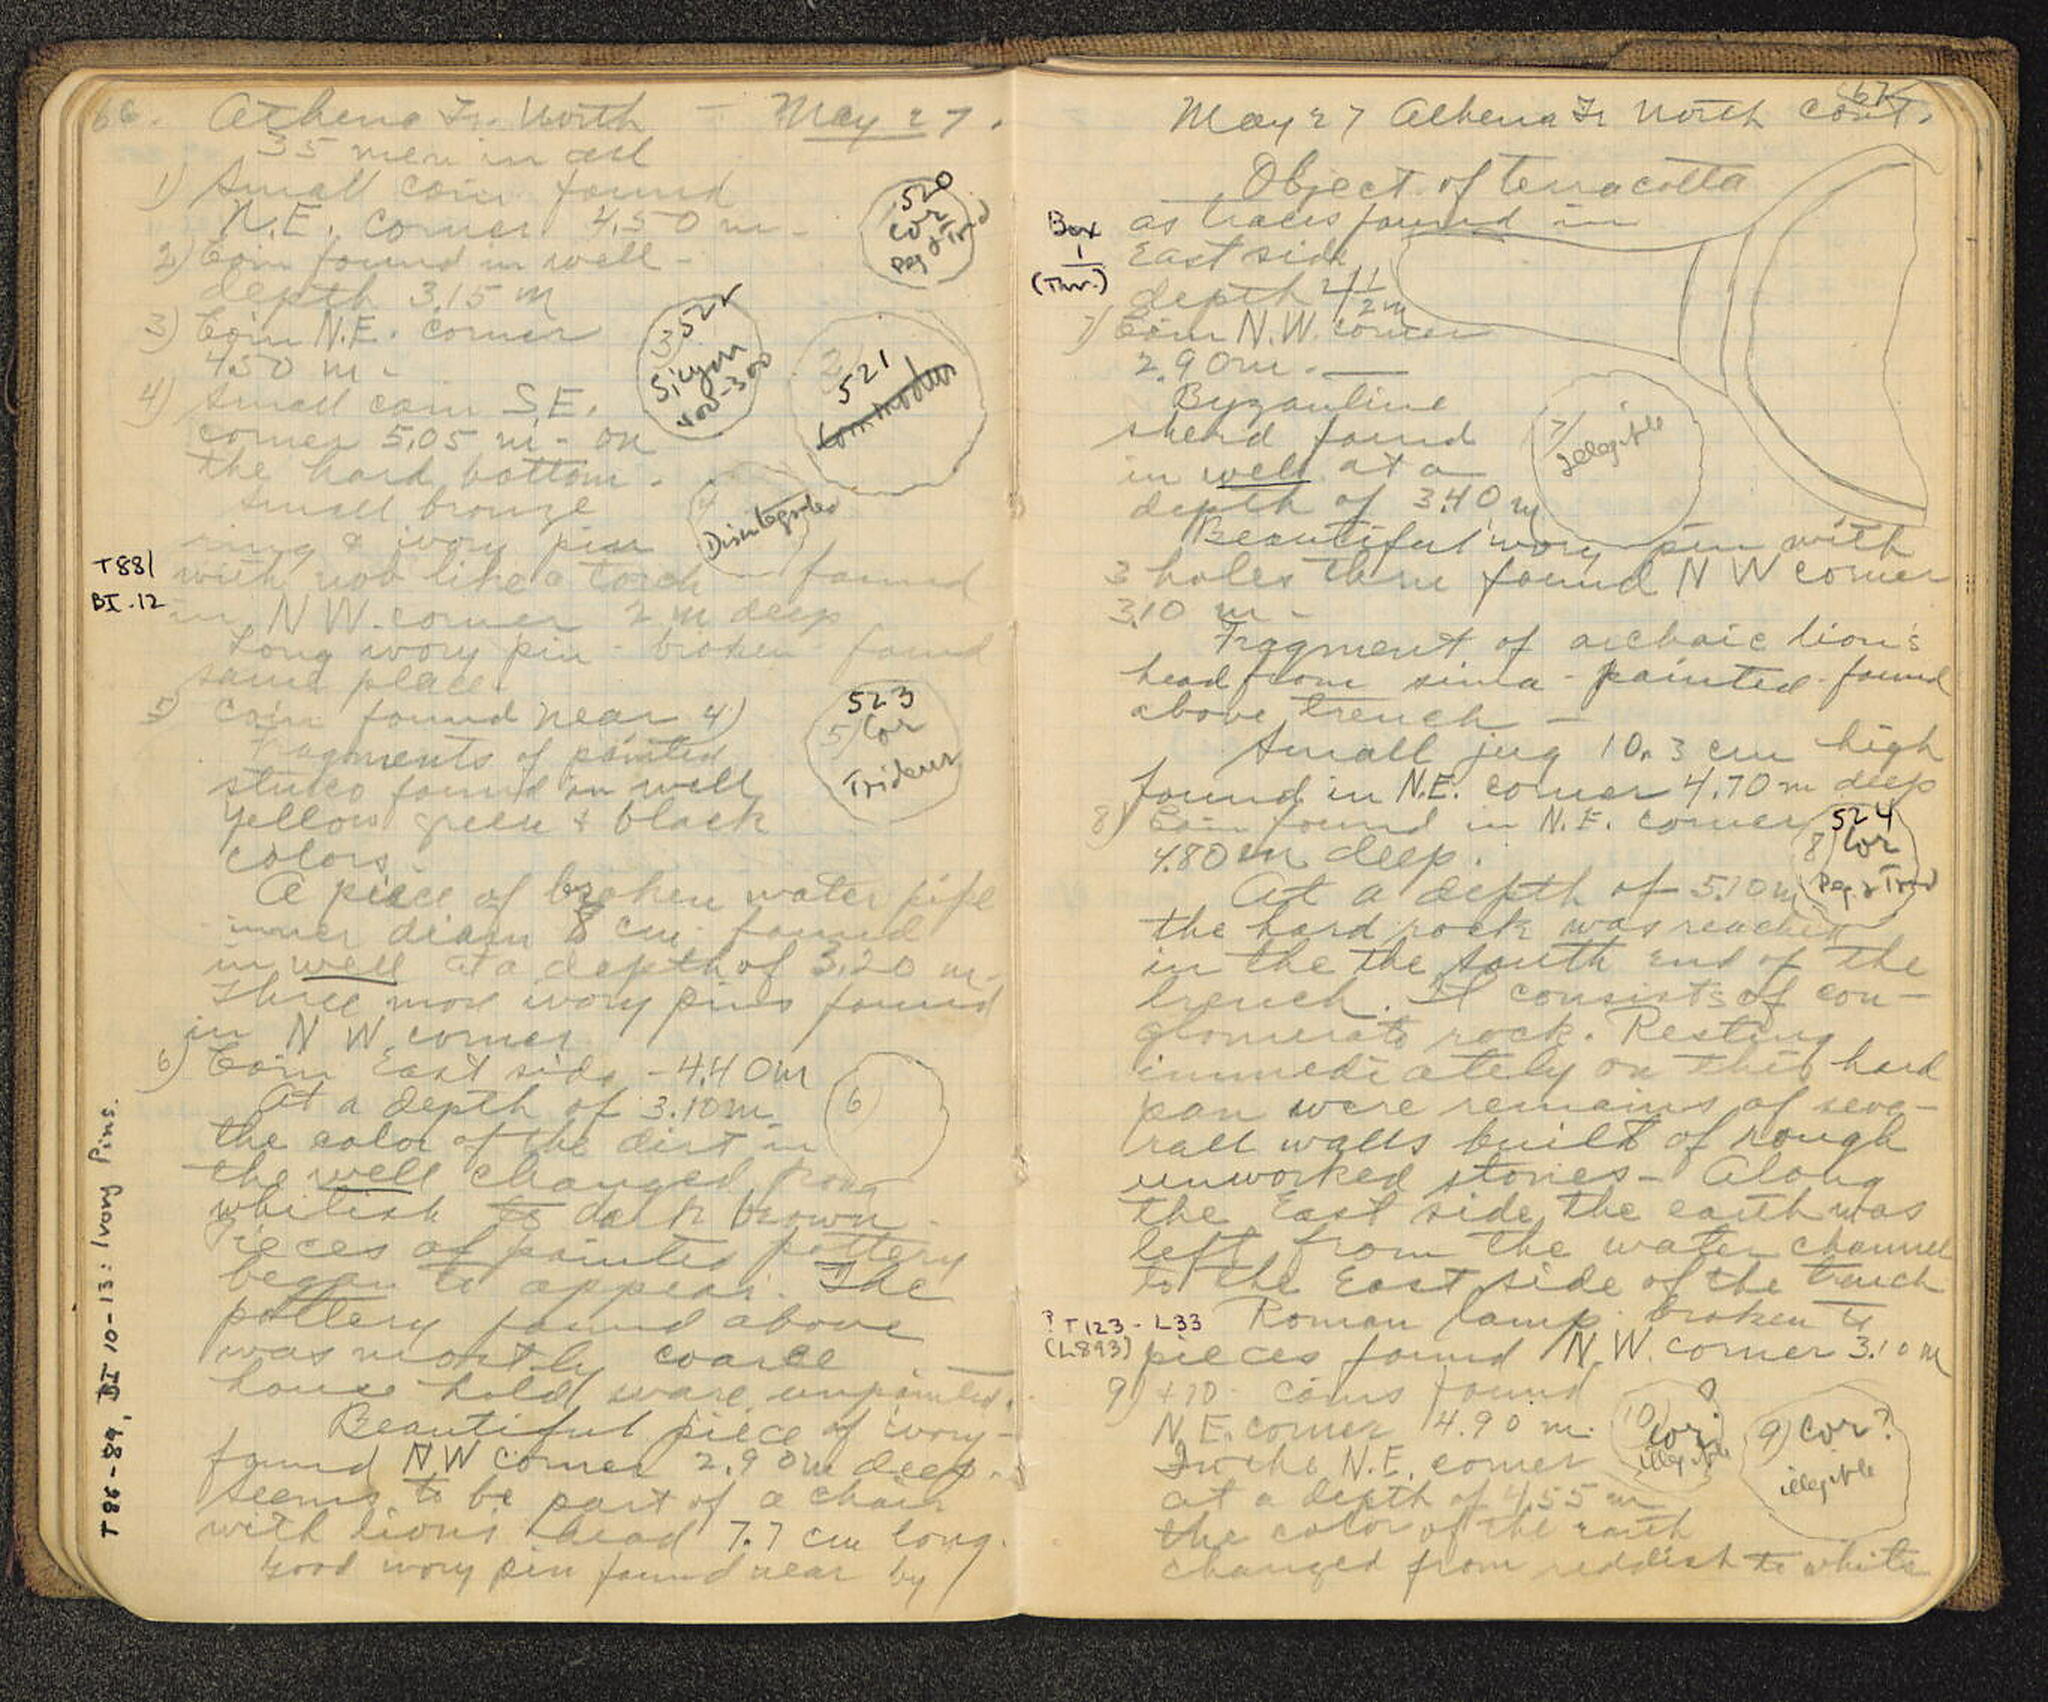 66. Athena Tr. North — May 27.
35 men in all
1) Small coin found
N.E. corner 4.50 m -
520
Cor
Peg & Trid
2) Coin found in well -
depth 3.15 m
3) Coin N.E. corner
4.50 m -
3) 522
Sicyon
400-300
2)
521
Commodus
4) Small coin S.E.
corner 5.05 m - on
the hard bottom.
4
Disintegrated
Small bronze
ring & ivory pin
T881
BI.12
with nob like a torch found
in NW. corner 2 m deep
Long ivory pin - broken - found
same place.
5) Coin found near 4)
523
5) Cor
Trident
Fragments of painted
stuko found in well
yellow green & black
colors.
A piece of broken water pipe
inner diam 8 cm. found
in well at a depth of 3.20 m.
Three more ivory pins found
in NW corner
6) Coin East side - 4.40m
6)
At a depth of 3.10m
the color of the dirt in
the well changed from
whitish to dark brown.
Pieces of painted pottery
began to appear. The
pottery found above
was mostly coarse
house hold ware unpainted.
Beautiful piece of ivory -
found NW corner 2.90m deep.
seems to be part of a chair
with lions head 7.7 cm long.
Good ivory pin found near by
T86-89, BI 10-13: Ivory Pins.
67
May 27 Athena Tr North Cont.
Object of terracotta
Box
1
(Thr.)
as traces found in
East side
depth 4 1/2 m
7) Coin N.W. corner
2.90m. —
7)
Illegible
Byzantine
sherd found
in well at a
depth of 3.40 m
Beautiful ivory pin with
3 holes thru found NW corner
3.10 m -
Fragment of archaic lion's
head from sima - painted - found
above trench —
Small jug 10.3 cm high
found in N.E. corner 4.70 m deep
8) Coin found in N.E. corner
4.80 m deep.
524
8) Cor
Peg & Trid
At a depth of 5.10 m
the hard rock was reached
in the the south end of the
trench. It consists of con-
glomerate rock. Resting
immediately on this hard
pan were remains of seve-
rall walls built of rough
unworked stones - Along
the East side the earth was
left from the water channel
to the East side of the trench
? T123 - L33
(L893)
Roman lamp broken to
pieces found N.W. corner 3.10 m
9) + 10 - Coins found
N.E. corner 4.90 m.
10)
Cor?
illegible
9) Cor?
illegible
In the N.E. corner
at a depth of 4.55 m
the color of the earth
changed from reddish to white